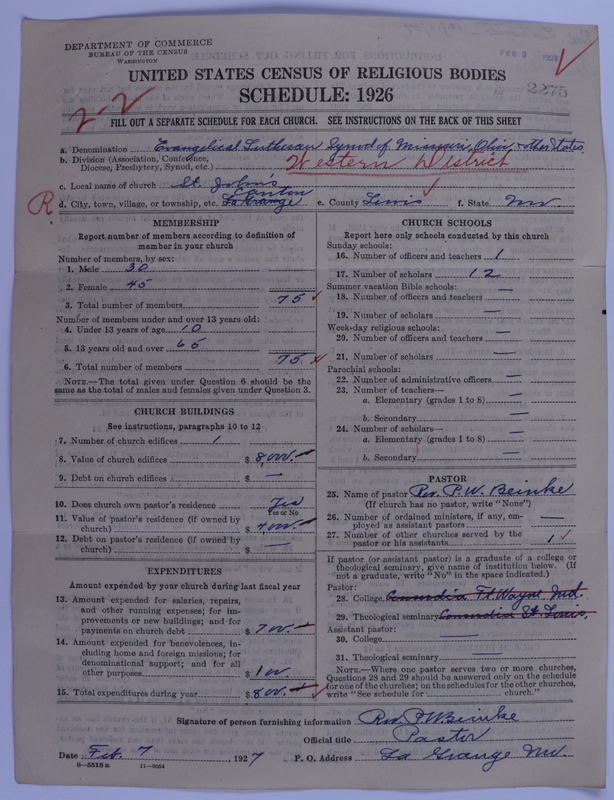 DEPARTMENT OF COMMERCE
BUREAU OF THE CENSUS
WASHINGTON
FEB 9 1927
UNITED STATES CENSUS OF RELIGIOUS BODIES
SCHEDULE: 1926
2275
2-2
FILL OUT A SEPARATE SCHEDULE FOR EACH CHURCH. SEE INSTRUCTIONS ON THE BACK OF THIS SHEET
a. Denomination Evangelical Lutheran Synod of Missouri, Ohio, & other States
b. Division (Association, Conference, Diocese, Presbytery, Synod, etc.) Western District
c. Local name of church St. John's
R
Canton
d. City, town, village, or township, etc. La Grange e. County Lewis f. State Mo
MEMBERSHIP
Report number of members according to definition of member in your church
Number of members, by sex:
1. Male 30
2. Female 45
3. Total number of members 75
Number of members under and over 13 years old:
4. Under 13 years of age 10
5. 13 years old and over 65
6. Total number of members 75
NOTE.—The total given under Question 6 should be the same as the total of males and females given under Question 3.
CHURCH BUILDINGS
See instructions, paragraphs 10 to 12
7. Number of church edifices 1
8. Value of church edifices $ 8,000.—
9. Debt on church edifices $ —
10. Does church own pastor's residence Yes
Yes or No
11. Value of pastor's residence (if owned by church) $ 4,000.—
12. Debt on pastor's residence (if owned by church) $ —
EXPENDITURES
Amount expended by your church during last fiscal year
13. Amount expended for salaries, repairs, and other running expenses; for improvements or new buildings; and for payments on church debt $ 700.—
14. Amount expended for benevolences, including home and foreign missions; for denominational support; and for all other purposes $ 100
15. Total expenditures during year $ 800.—
CHURCH SCHOOLS
Report here only schools conducted by this church
Sunday schools:
16. Number of officers and teachers 1
17. Number of scholars 12
Summer vacation Bible schools:
18. Number of officers and teachers —
19. Number of scholars —
Week-day religious schools:
20. Number of officers and teachers —
21. Number of scholars —
Parochial schools:
22. Number of administrative officers —
23. Number of teachers—
a. Elementary (grades 1 to 8) —
b. Secondary —
24. Number of scholars—
a. Elementary (grades 1 to 8) —
b. Secondary —
PASTOR
25. Name of pastor Rev. P. W. Beinke
(If church has no pastor, write "None")
26. Number of ordained ministers, if any, employed as assistant pastors —
27. Number of other churches served by the pastor or his assistants 1
If pastor (or assistant pastor) is a graduate of a college or theological seminary, give name of institution below. (If not a graduate, write "No" in the space indicated.)
Pastor:
28. College Concordia Ft. Wayne Ind.
29. Theological seminary Concordia St. Louis
Assistant pastor:
30. College —
31. Theological seminary —
NOTE.—Where one pastor serves two or more churches, Questions 28 and 29 should be answered only on the schedule for one of the churches; on the schedules for the other churches, write "See schedule for church."
Signature of person furnishing information Rev. P W Beinke
Official title Pastor
Date Feb. 7 1927 P. O. Address La Grange Mo
8-5518 a 11-9054